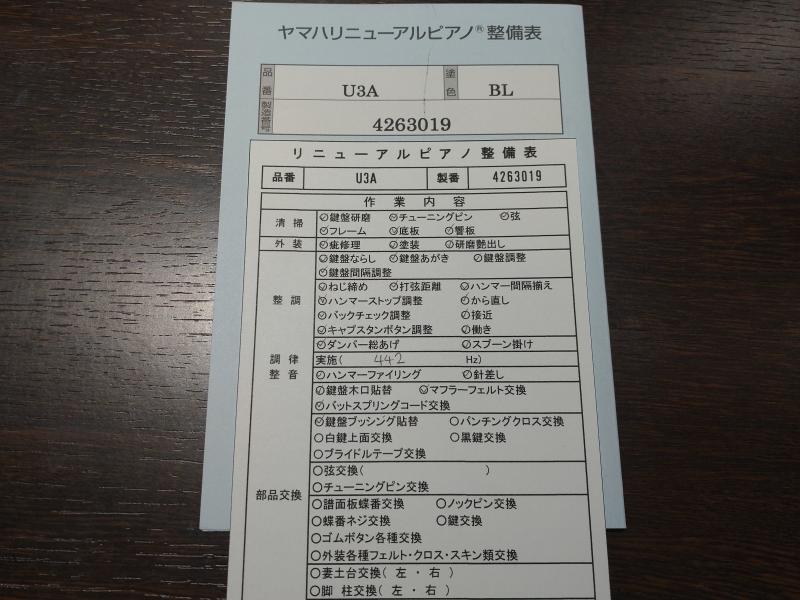 ヤマハリニューアルピアノ®整備表
品番 U3A 塗色 BL
製造番号 4263019
リニューアルピアノ整備表
品番 U3A 製番 4263019
作業内容
清掃 鍵盤研磨 チューニングピン 弦
フレーム 底板 響板
外装 疵修理 塗装 研磨艶出し
鍵盤ならし 鍵盤あがき 鍵盤調整
鍵盤間隔調整
ねじ締め 打弦距離 ハンマー間隔揃え
整調 ハンマーストップ調整 から直し
バックチェック調整 接近
キャプスタンボタン調整 働き
ダンパー総あげ スプーン掛け
調律 実施( 442 Hz)
整音 ハンマーファイリング 針差し
鍵盤木口貼替 マフラーフェルト交換
バットスプリングコード交換
鍵盤ブッシング貼替 ○パンチングクロス交換
○白鍵上面交換 ○黒鍵交換
○ブライドルテープ交換
○弦交換( )
部品交換 ○チューニングピン交換
○譜面板蝶番交換 ○ノックピン交換
○蝶番ネジ交換 ○鍵交換
○ゴムボタン各種交換
○外装各種フェルト・クロス・スキン類交換
○妻土台交換( 左 ・ 右 )
○脚 柱交換( 左 ・ 右 )